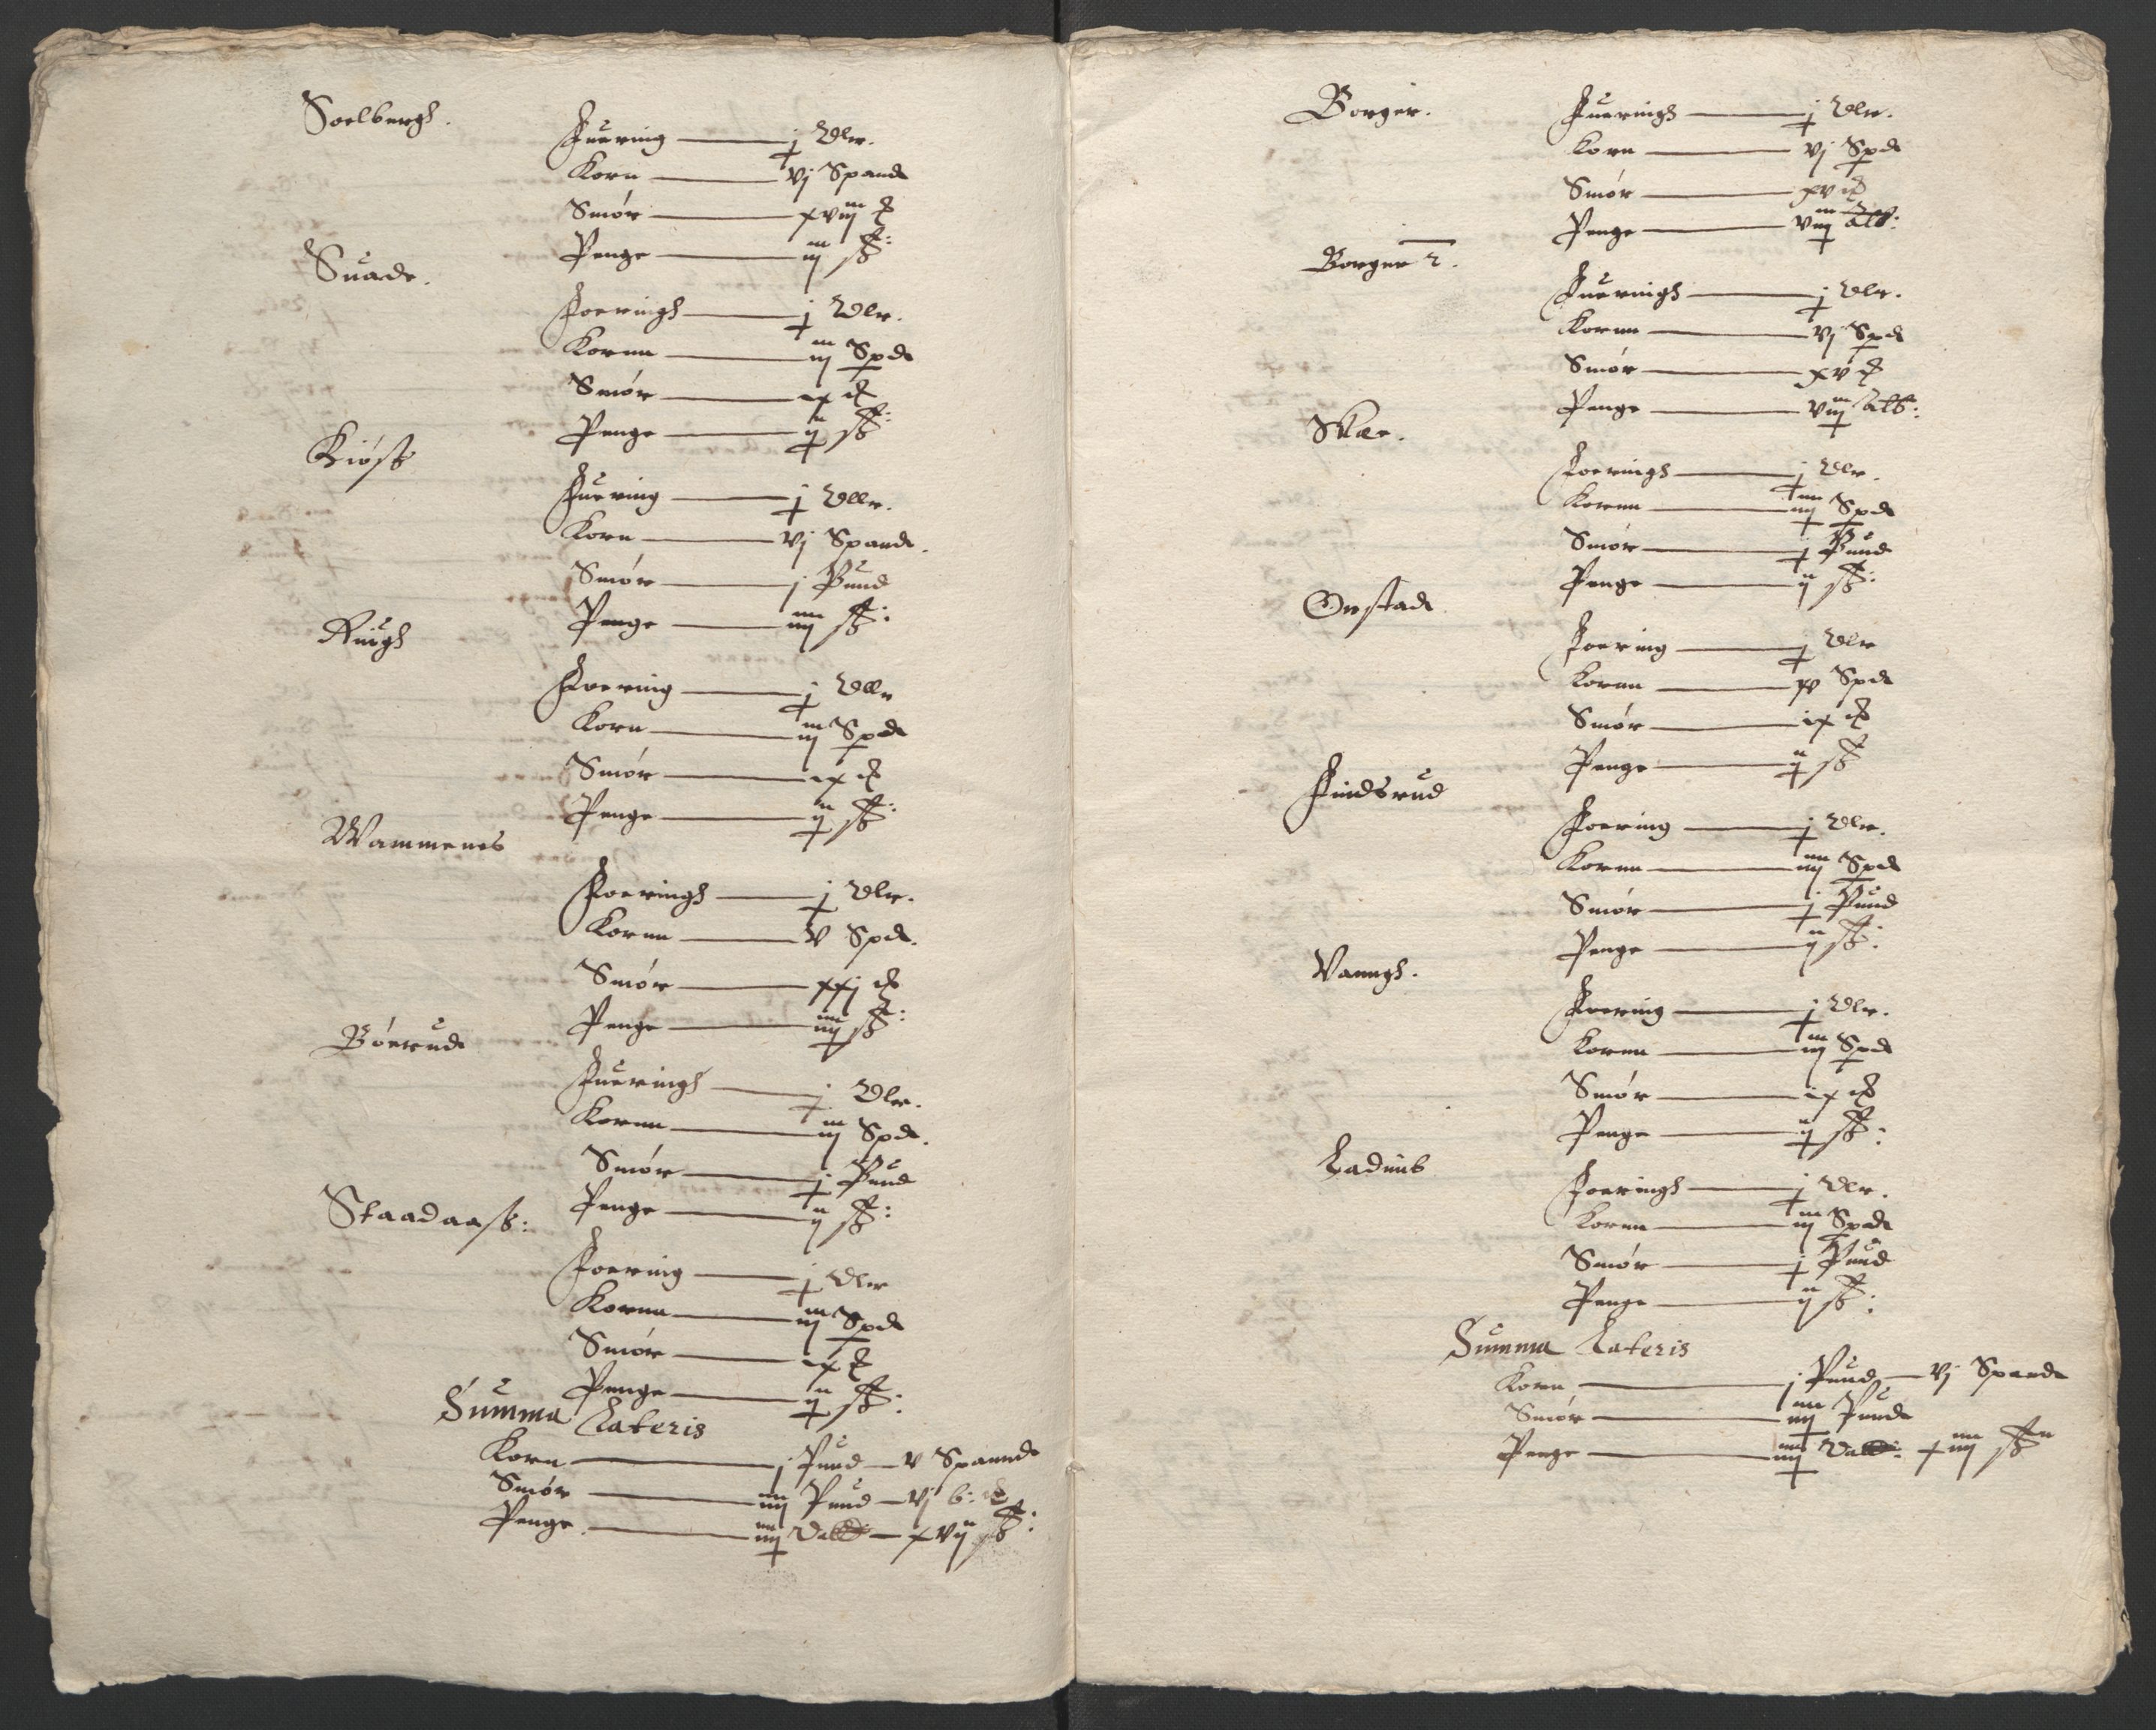 Soelbergh.
Fuering — j Dlr.
Korn — vj Spand
Smör — xviij ℔
Penge — iij sk:
Suade.
Foeringh — j Dlr.
Kornn — iij Spd
Smör — ix ℔
Penge — ij sk:
Kiösk
Fuering — j Dllr.
Korn — vj Spand.
Smör — j Pund
Penge — iiij sk:
Foering — j Dllr
Korn — iij Spd
Smör — ix ℔
Penge — ij sk:
Wammenes
Foeringh — j Dlr.
Kornn — v Spd.
Smör — xxj ℔
Penge — iiij sk:
Böerud
Fueringh — j Dlr.
Kornn — iij Spd.
Smör — j Pund
Penge — ij sk:
Staadaass:
Foering — j Dlr
Kornn — iij Spd
Smör — ix ℔
Penge — ij sk:
Summa Lateris
Korn — j Pund — v Spannd
Smör — iiij Pund — vj b: ℔
Penge — iiij — xvij sk:
Borger.
Fueringh — j Dlr.
Korn — vj Spd
Smör — xv ℔
Penge — viij alb:
Borger 2.
Fueringh — j Dlr.
Kornn — vj Spd
Smör — xv ℔
Penge — viij alb:
Skae.
Foeringh — j Dlr.
Kornn — iiij Spd
Smör — j Pund
Penge — ij sk:
Onstad
Foering — j Dlr
Kornn — v Spd
Smör — ix ℔
Penge — ij sk
Findsrud
Foering — j Dlr.
Kornn — iiij Spd
Smör — j Pund
Penge — ij sk:
Vanngh.
Foering — j Dlr.
Kornn — iij Spd
Smör — ix ℔
Penge — ij sk:
Ladimb
Foeringh — j Dlr.
Kornn — iij Spd
Smör — j Pund
Penge — ij sk:
Summa Lateris
Korn — j Pund — vj Spand
Smör — iiij Pund
Penge — iiij xiiij sk